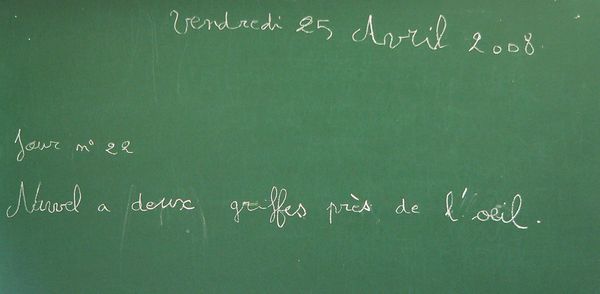 Vendredi 25 Avril 2008
Jour n° 22
Nawel a deux griffes près de l'oeil.